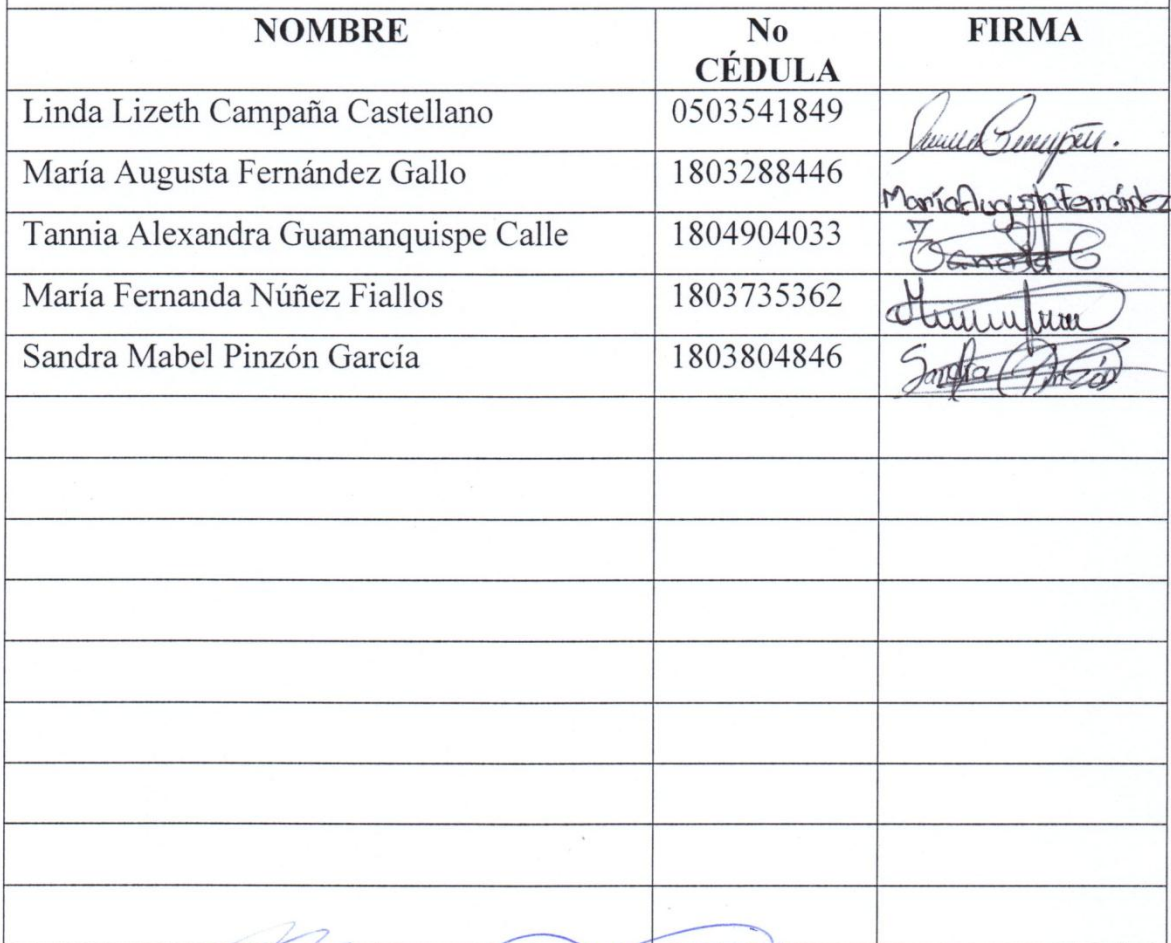 NOMBRE No CÉDULA FIRMA
Linda Lizeth Campaña Castellano 0503541849
María Augusta Fernández Gallo 1803288446 María Augusta Fernández
Tannia Alexandra Guamanquispe Calle 1804904033
María Fernanda Núñez Fiallos 1803735362
Sandra Mabel Pinzón García 1803804846 Sandra Pinzón